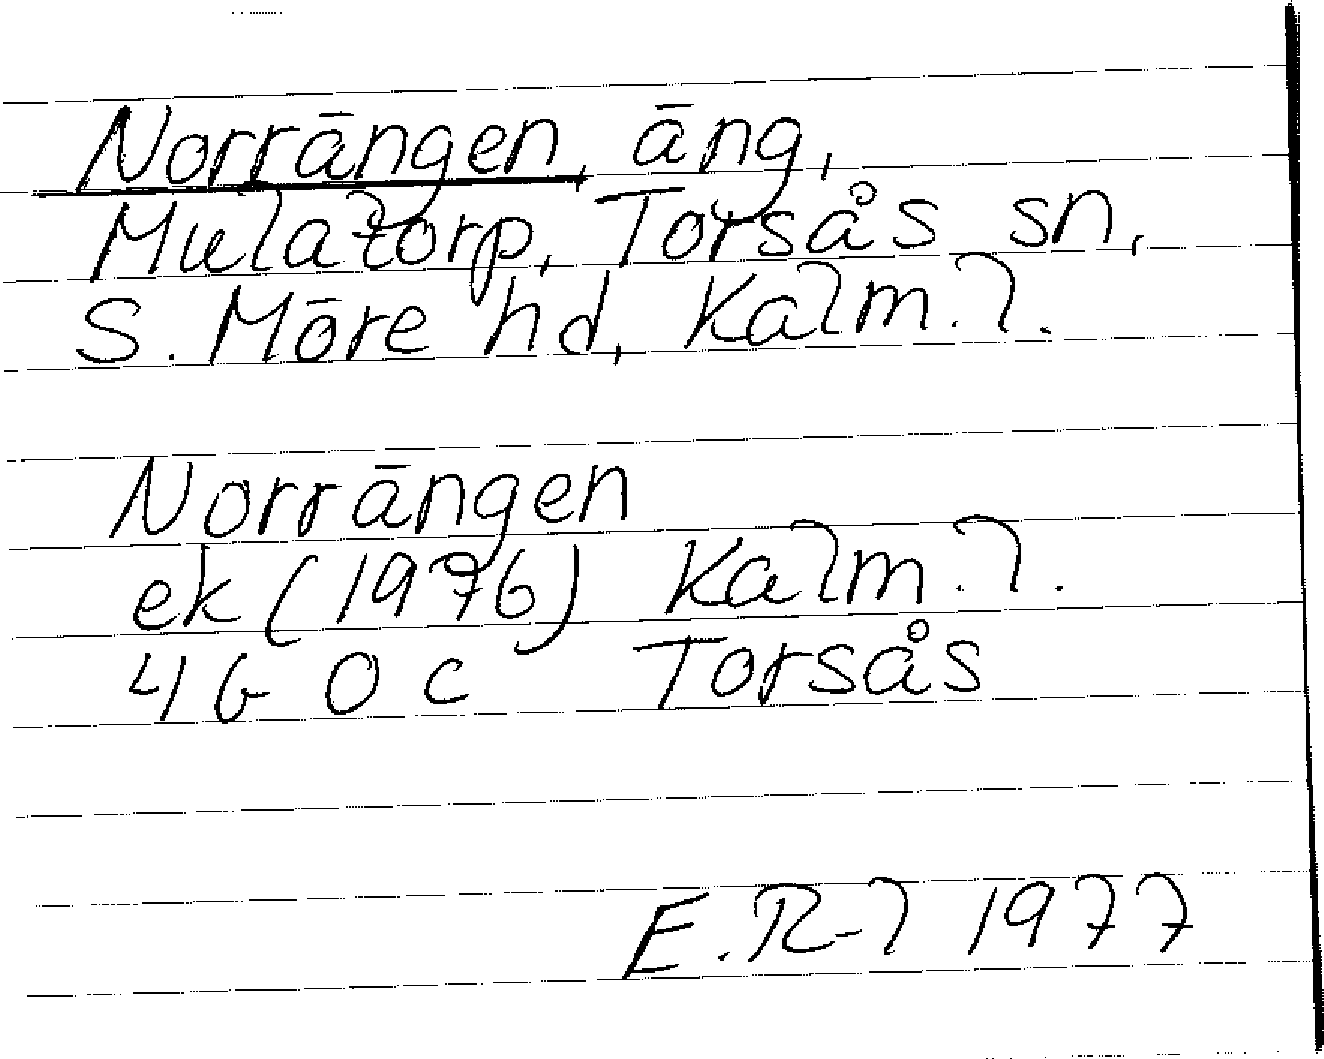 Norrängen, äng,
Mulatorp, Torsås sn,
S. Möre hd, Kalm. l.
Norrängen
ek (1976) Kalm. l.
4G 0c Torsås
E. R-l 1977